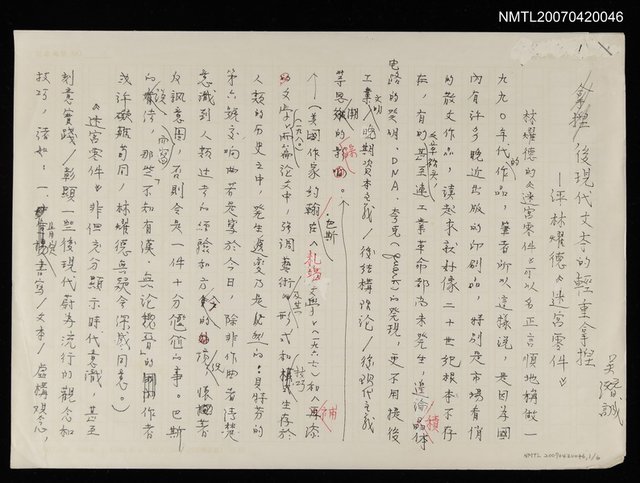 NMTL20070420046
1
「拿捏」後現代文本的輕重拿捏
——評林燿德《迷宮零件》
吳潛誠
林燿德的《迷宮零件》可以名正言順地稱做一
九九○年代的作品，筆者所以這樣說，是因為國
內有許多晚近出版的印刷品，特別是市場看俏
的散文作品，讀起來就好像二十世紀根本不存
在，有的甚至連工業革命都尚未發生，遑論積體
電路的發明、DNA、夸克(quark)的發現，更不用提後
工業文明/晚期資本主義/後結構理論/後現代主義
等思潮的
美國作家約翰·巴斯在〈枯竭的文學〉(一九六七)和〈再添
的文學〉(一九八○)兩篇論文中，強調藝術及其形式和技巧生存於
人類的歷史之中，發生遷變乃是必然的：貝特芬的
第六號交響曲若是寫於今日，除非作曲者清楚
意識到人類過去的經驗和
為諷意圖，否則會是一件十分尷尬的事。巴斯
的
或許破題苟同，林燿德無疑會深感同意。
《迷宮零件》非但充分顯示時代意識，甚至
刻意實踐/彰顯一些後現代蔚為流行的觀念和
技巧，諸如：一、書寫/文本/虛構觀念，
NMTL 20070420046, 1/6